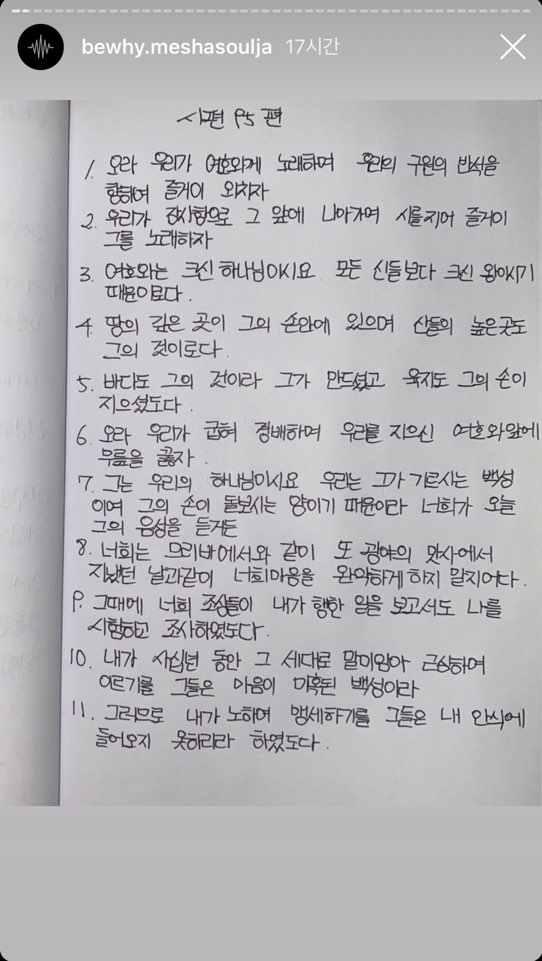 bewhy.meshasoulja 17시간
시편 95편
1. 오라 우리가 여호와께 노래하며 우리의 구원의 반석을
향하여 즐거이 외치자
2. 우리가 감사함으로 그 앞에 나아가며 시를지어 즐거이
그를 노래하자
3. 여호와는 크신 하나님이시요 모든 신들보다 크신 왕이시기
때문이로다.
4. 땅의 깊은 곳이 그의 손안에 있으며 산들의 높은곳도
그의 것이로다.
5. 바다도 그의 것이라 그가 만드셨고 육지도 그의 손이
지으셨도다.
6. 오라 우리가 굽혀 경배하며 우리를 지으신 여호와앞에
무릎을 꿇자.
7. 그는 우리의 하나님이시요 우리는 그가 기르시는 백성
이며 그의 손이 돌보시는 양이기 때문이라 너희가 오늘
그의 음성을 듣거든
8. 너희는 므리바에서와 같이 또 광야의 맛사에서
지냈던 날과같이 너희마음을 완악하게 하지 말지어다.
9. 그때에 너희 조상들이 내가 행한 일을 보고서도 나를
시험하고 조사하였도다.
10. 내가 사십년 동안 그 세대로 말미암아 근심하여
이르기를 그들은 마음이 미혹된 백성이라
11. 그러므로 내가 노하여 맹세하기를 그들은 내 안식에
들어오지 못하리라 하였도다.